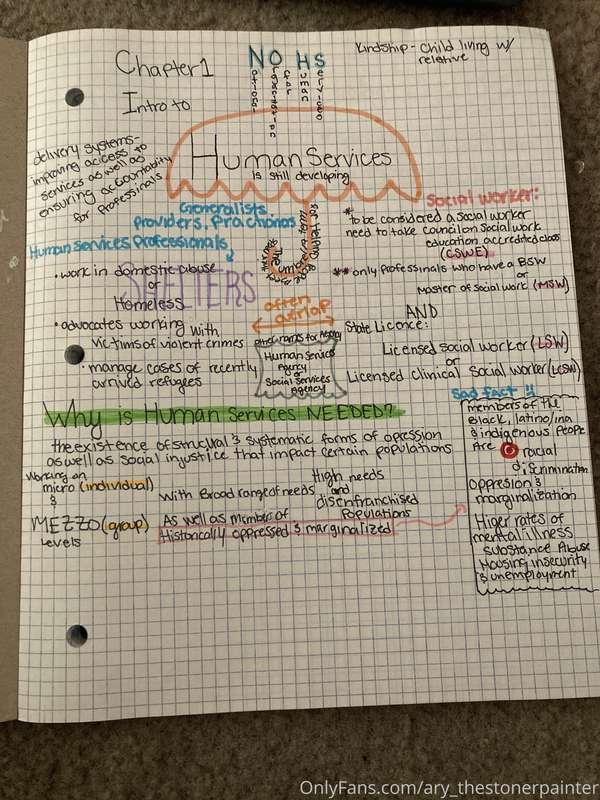 Chapter 1
Intro to
NOHS
National
Organization
for
Human
Services
Kindship - Child living w/
relative
Human Services
is still developing
delivery systems-
improving access to
services as well as
ensuring accountability
for professionals
Generalists
Providers, Prachonars
Human Services Professionals
• work in domestic abuse
or
Homeless
SHELTERS
• advocates working with
victims of violent crimes
• manage cases of recently
arrived refugees
The umbrella
often
overlap
other names for Agency
Human Service
Agency
or
Social Services
Agency
Social worker:
* to be considered a social worker
need to take council on social work
education accredited class
(CSWE)
** only professinals who have a BSW
or
Master of Social work (MSW)
AND
State Licence:
Licensed Social worker (LSW)
or
Licensed clinical Social worker (LCSW)
Why is Human Services NEEDED?
the existence of structural & systematic forms of opression
as well as social injustice that impact certain populations
Working on
micro (individual)
&
MEZZO (group)
Levels
With Broad range of needs
High needs
and
disenfranchised
Populations
As well as member of
Historically oppressed & marginalized
Sad fact !!
members of the
Black, latino/ina
& indigenous people
Are
racial
discrimination
Oppresion &
marginalization
Higer rates of
mental illness
Substance Abuse
Housing insecurity
& unemployment
OnlyFans.com/ary_thestonerpainter